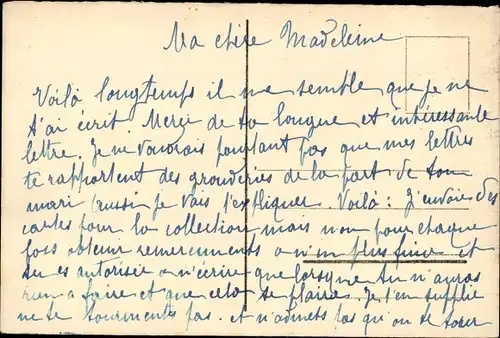 Ma chère Madeleine
Voilà longtemps il me semble que je ne
t'ai écrit. Merci de ta longue et intéressante
lettre. Je ne voudrais pourtant pas que mes lettres
te rapportent des gronderies de la part de ton
mari (aussi je vais t'expliquer. Voilà: J'envoie des
cartes pour la collection mais non pour chaque
fois obtenir remerciements à n'en plus finir et
tu es autorisée à n'écrire que lorsque tu n'auras
rien à faire et que cela te plaira. Je t'en supplie
ne te tourmentes pas. et n'admets pas qu'on te